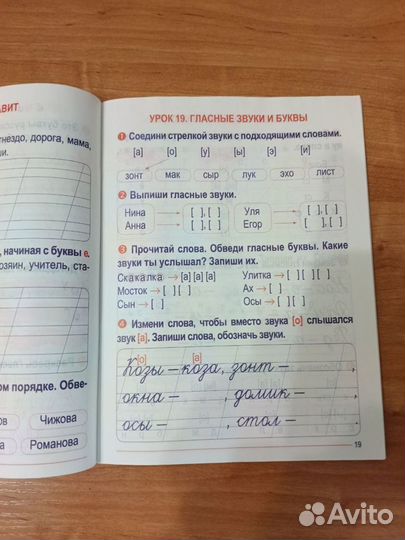 ВИТ
гнездо, дорога, мама,
ши.
, начиная с буквы е.
озяин, учитель, ста-
ом порядке. Обве-
ов Чижова
а Романова
УРОК 19. ГЛАСНЫЕ ЗВУКИ И БУКВЫ
1 Соедини стрелкой звуки с подходящими словами.
[а] [о] [у] [ы] [э] [и]
зонт мак сыр лук эхо лист
2 Выпиши гласные звуки.
Нина [ ], [ ] Уля [ ], [ ]
Анна [ ], [ ] Егор [ ], [ ]
3 Прочитай слова. Обведи гласные буквы. Какие
звуки ты услышал? Запиши их.
Скакалка → [а] [а] [а] Улитка → [ ] [ ] [ ]
Мосток → [ ] [ ] Ах → [ ]
Сын → [ ] Осы → [ ] [ ]
4 Измени слова, чтобы вместо звука [о] слышался
звук [а]. Запиши слова, обозначь звуки.
[о] [а]
Козы – коза, зонт – ,
окна – , домик – ,
осы – , стол – .
19
Avito